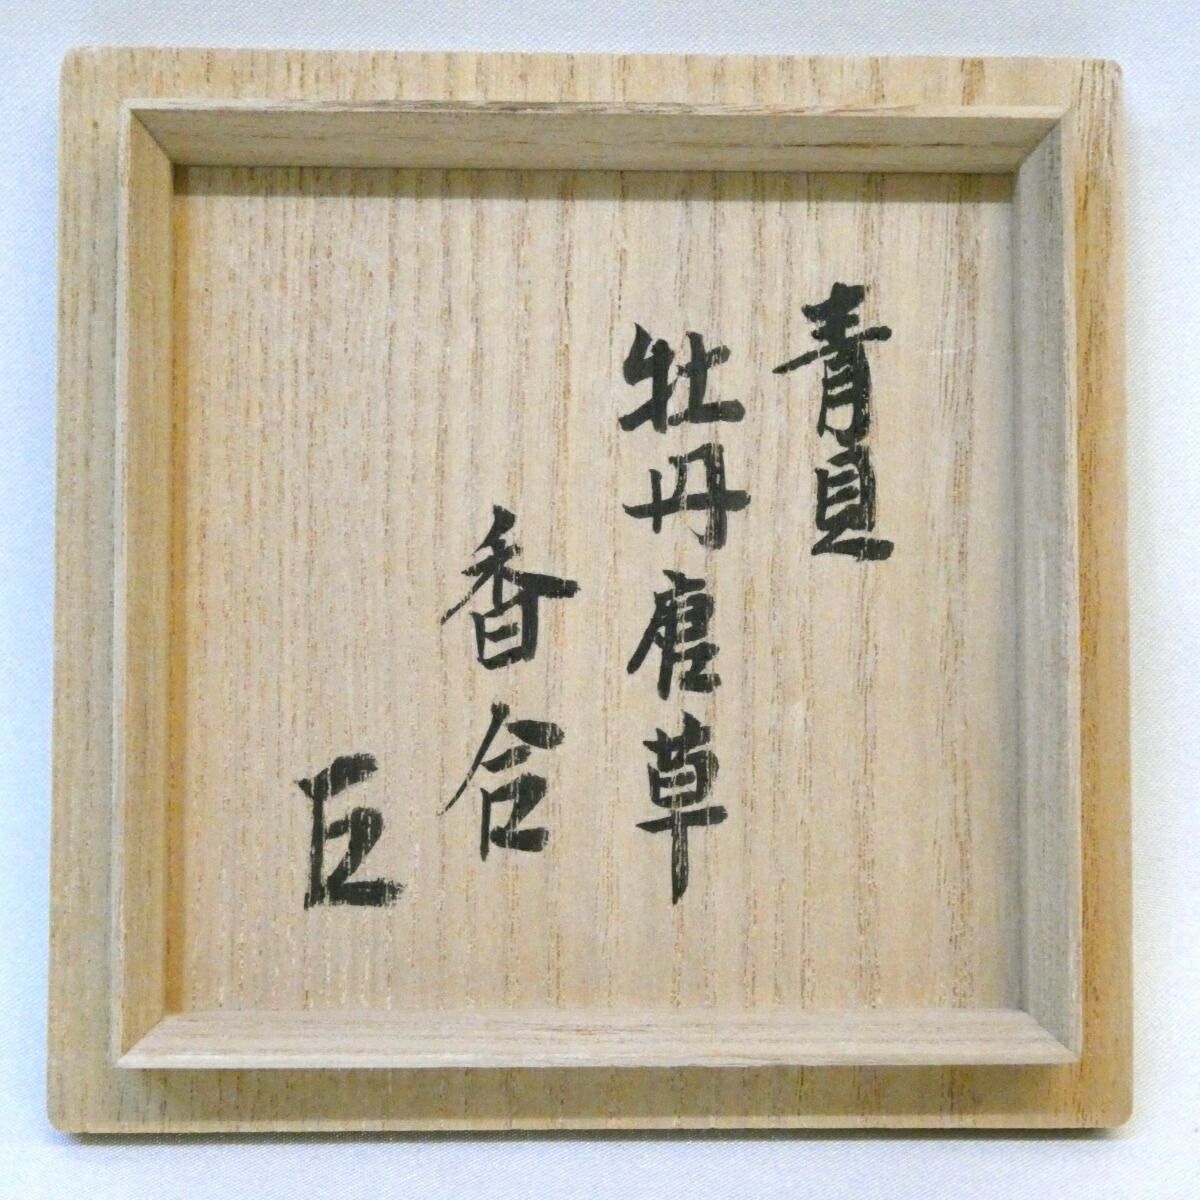 青貝
牡丹唐草
香合
巨